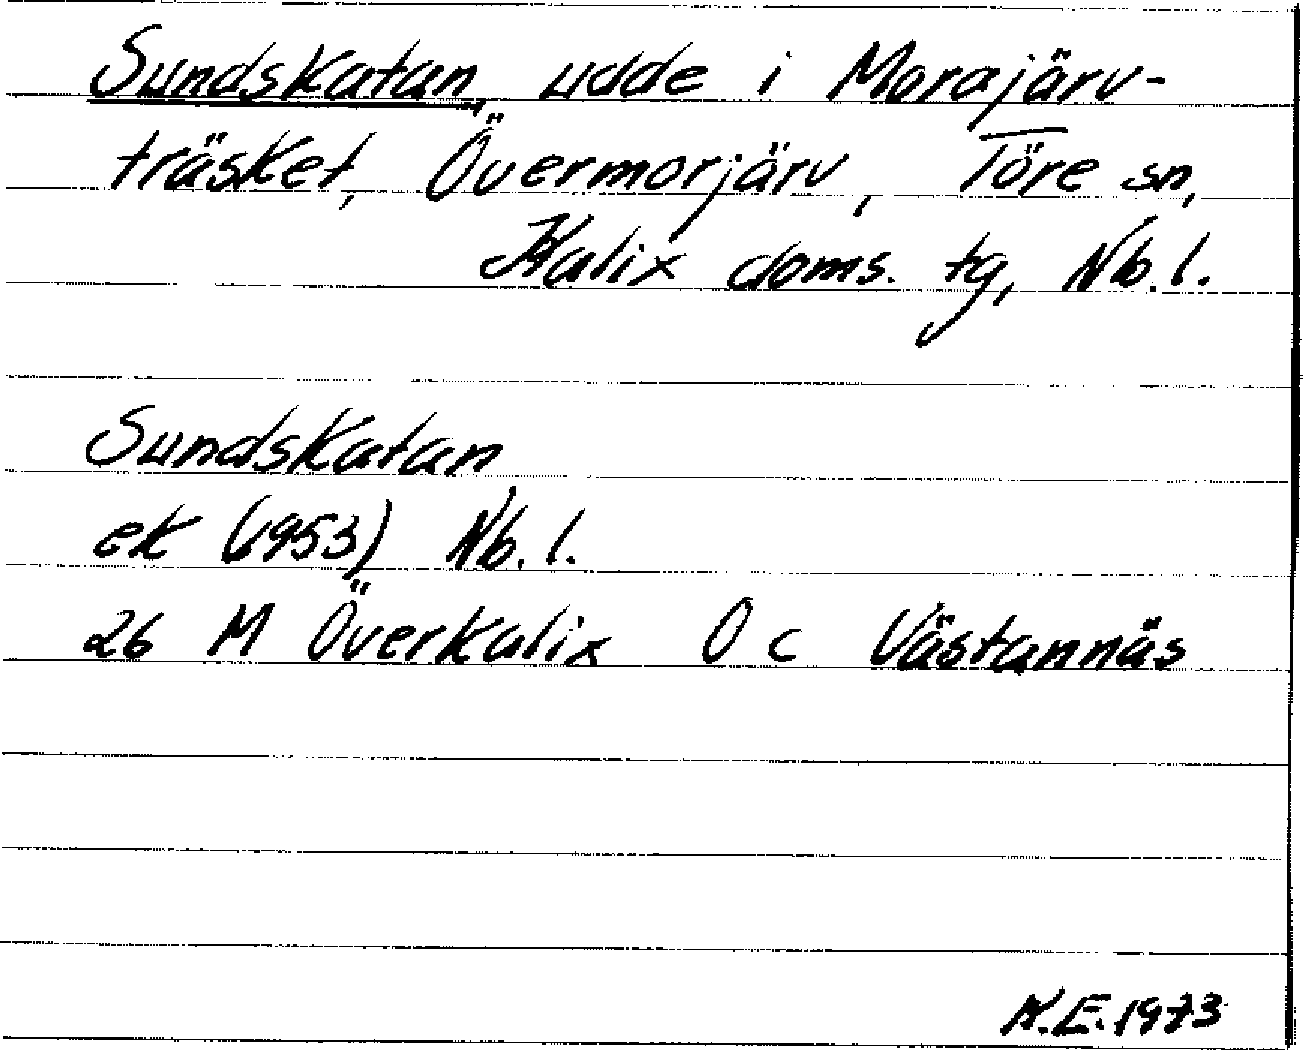 Sundskatan, udde i Morajärv-
träsket, Övermorjärv, Töre sn,
Kalix doms. tg, Nb. l.
Sundskatan
ek (1953) Nb. l.
26 M Överkalix O c Västannäs
K.E. 1973